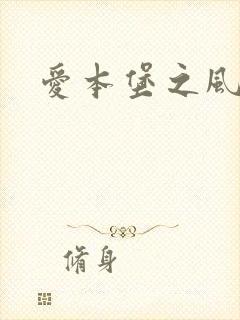 愛本堡之風
脩身